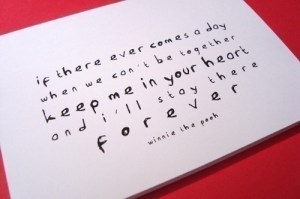 if there ever comes a day
when we can't be together
keep me in your heart
and i'll stay there
forever
winnie the pooh